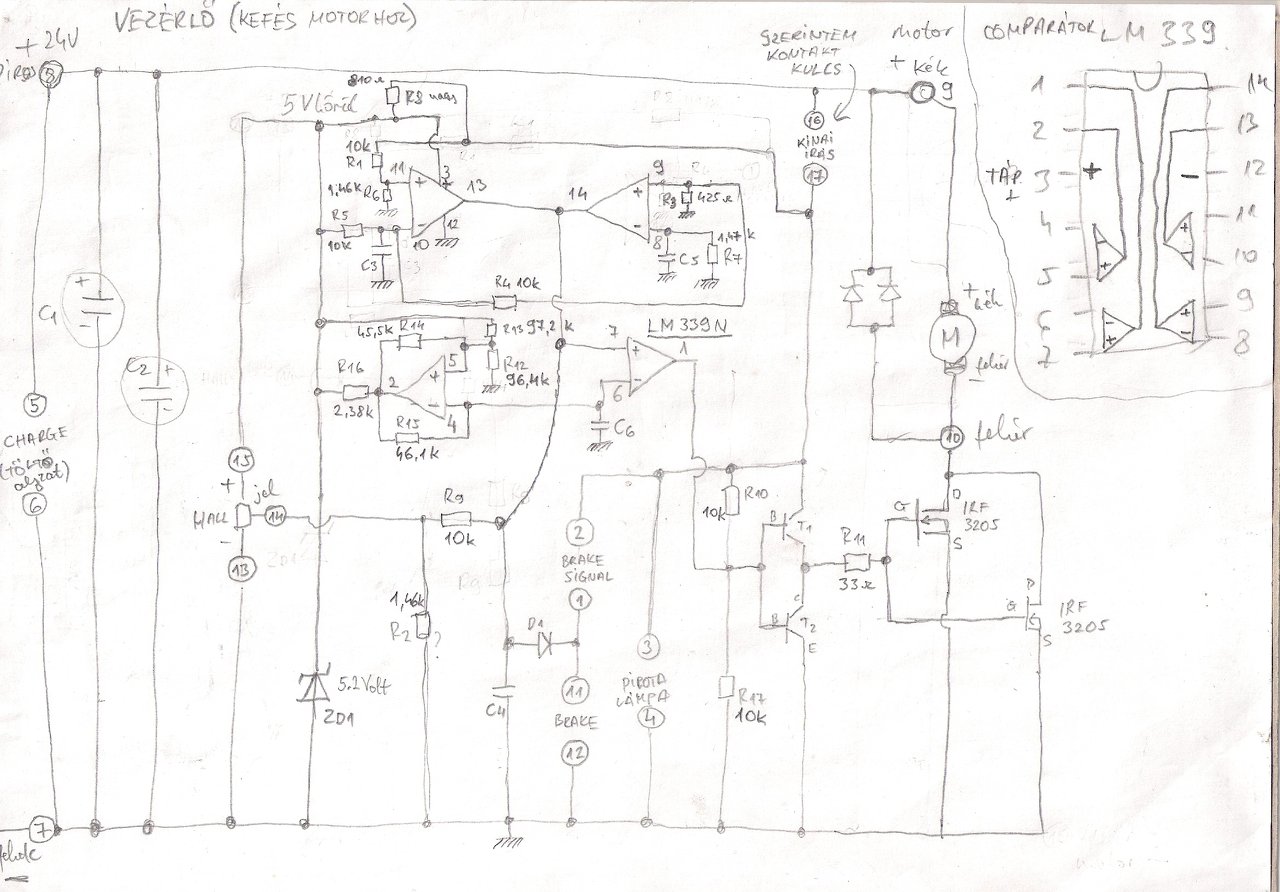 VEZÉRLŐ (KEFÉS MOTORHOZ)
+ 24V
8
5 VLőről
810Ω
R8
10k
R1
11
3
+
13
1,46k
R6
12
R5
10k
10
C3
14
9
+
-
8
R3
425Ω
1,47k
C5
R7
R4 10k
SZERINTEM
KONTAKT
KULCS
16
KINAI
IRÁS
17
Motor
+ kék
9
COMPARÁTOR LM 339
1
2
TÁP
+
3
4
5
6
7
14
13
12
11
10
9
8
C1
+
-
C2
+
-
5
CHARGE
(TÖLTŐ
aljzat)
6
45,5k
R14
R13 97,2 k
R12
96,4k
R16
2,38k
2
5
+
-
4
R15
46,1k
LM 339N
7
+
1
-
6
C6
+
kék
M
fehér
-
10
fehér
15
+
jel
HALL
14
-
13
R9
10k
2
BRAKE
SIGNAL
1
R10
10k
B
T1
C
B
T2
E
R11
33Ω
G
D
IRF
3205
S
D
G
IRF
3205
S
1,46k
R2
?
5.2 Volt
ZD1
D1
C4
11
BRAKE
12
3
PIROTA
LÁMPA
4
R17
10k
7
-